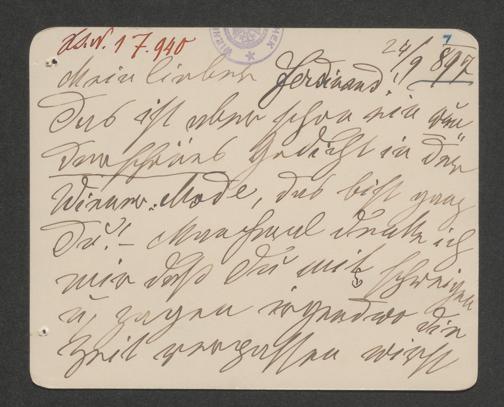 H.I.N. 17.940
24/9 897
Mein lieber Ferdinand!
Das ist aber schon ein
schönes Gedicht in der
Wiener-Mode, das bist ganz
Du! – Manchmal denke ich
mir daß Du mit
u. irgendwo die
Zeit verpassen wirst